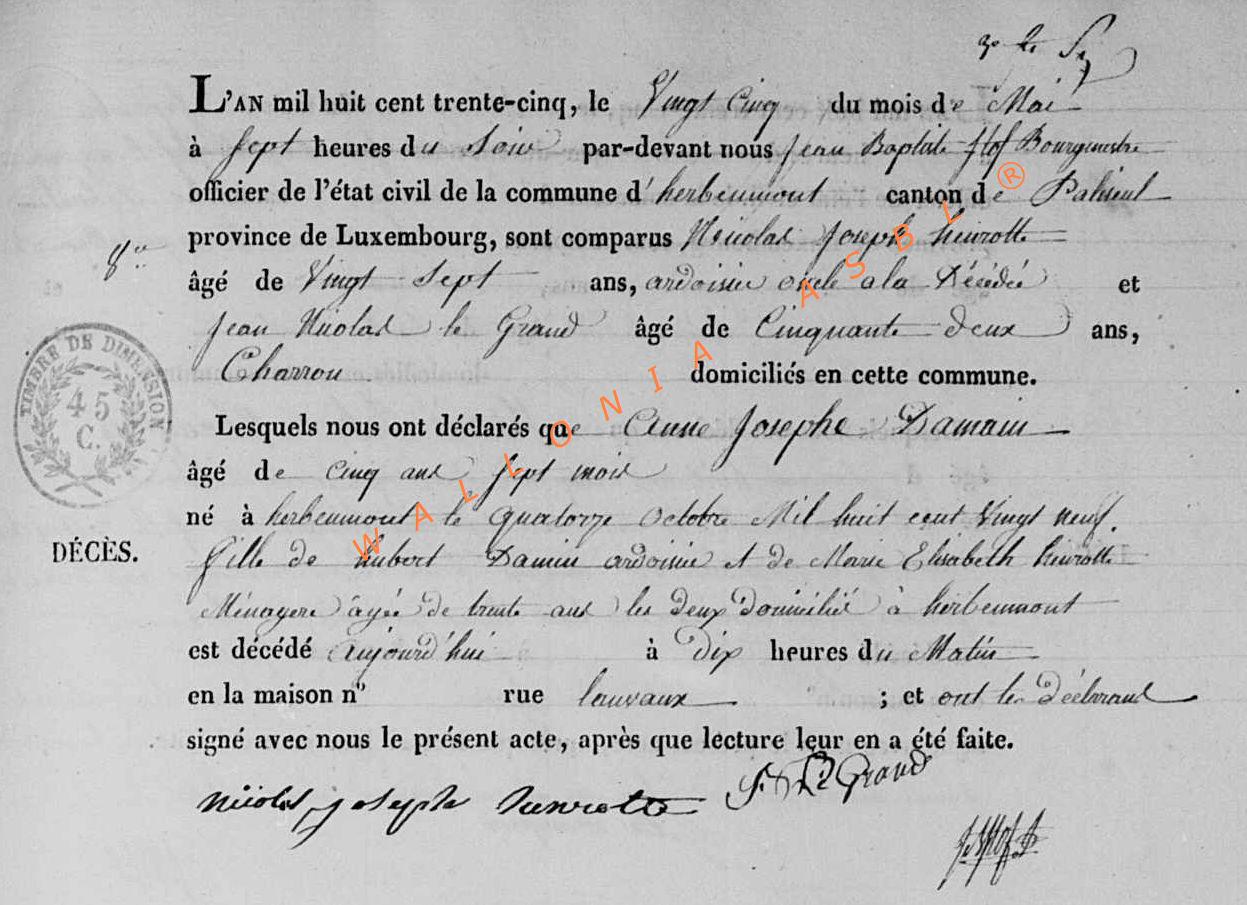 L'AN mil huit cent trente-cinq, le Vingt Cinq du mois de Mai
à Sept heures du Soir par-devant nous Jean Baptiste Bourgmestre
officier de l'état civil de la commune d'herbeumont canton de Paliseul
province de Luxembourg, sont comparus Nicolas Joseph henrotte
8e
âgé de Vingt Sept ans, ardoisier oncle a la Décédée et
Jean Nicolas le Grand âgé de Cinquante deux ans,
Charron domiciliés en cette commune.
TIMBRE DE DIMENSION
45
C.
Lesquels nous ont déclarés que Anne Josephe Damain
âgé de cinq ans Sept mois
né à herbeumont le quatorze Octobre Mil huit cent Vingt neuf.
DÉCÈS.
fille de hubert Damin ardoisier et de Marie Elisabeth henrotte
Ménagere âgée de trente ans les deux domicilié à herbeumont
est décédé aujourd'hui à dix heures du Matin
en la maison n° rue lauvaux ; et ont les Déclarans
signé avec nous le présent acte, après que lecture leur en a été faite.
Nicolas joseph henrotte J. N. Le Grand
WALLONIA ASBL ®